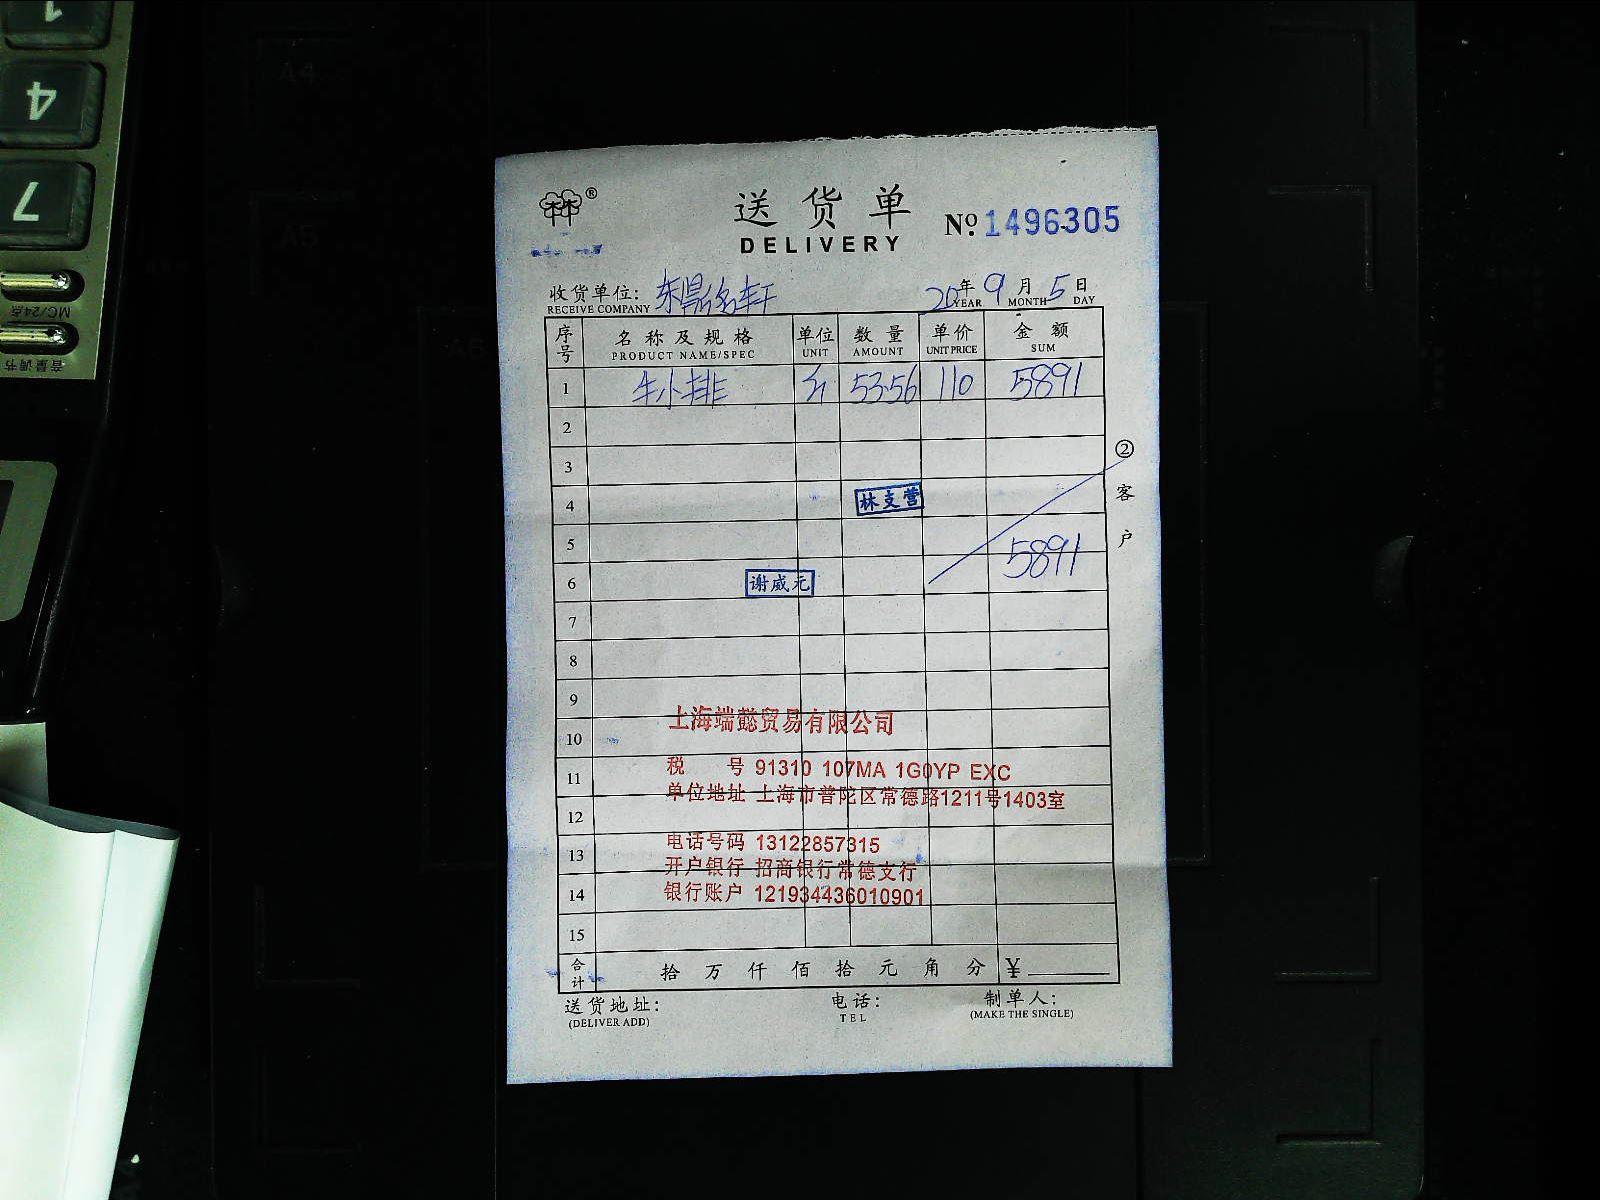 ®
送货单
DELIVERY
Nº 1496305
收货单位:
RECEIVE COMPANY
20年 9月 5日
YEAR MONTH DAY
序号 名称及规格 单位 数量 单价 金额
PRODUCT NAME/SPEC UNIT AMOUNT UNIT PRICE SUM
1 牛小排 斤 53.56 110 5891
2
3
4 林支营
5 5891
6 谢威元
7
8
9
10 上海端懿贸易有限公司
11 税 号 91310 107MA 1G0YP EXC
单位地址 上海市普陀区常德路1211号1403室
12
13 电话号码 13122857315
开户银行 招商银行常德支行
14 银行账户 121934436010901
15
合计 拾 万 仟 佰 拾 元 角 分 ¥
送货地址: 电话: 制单人:
(DELIVER ADD) TEL (MAKE THE SINGLE)
②客户
1
4
7
MC/24点
音量调节
A4
A5